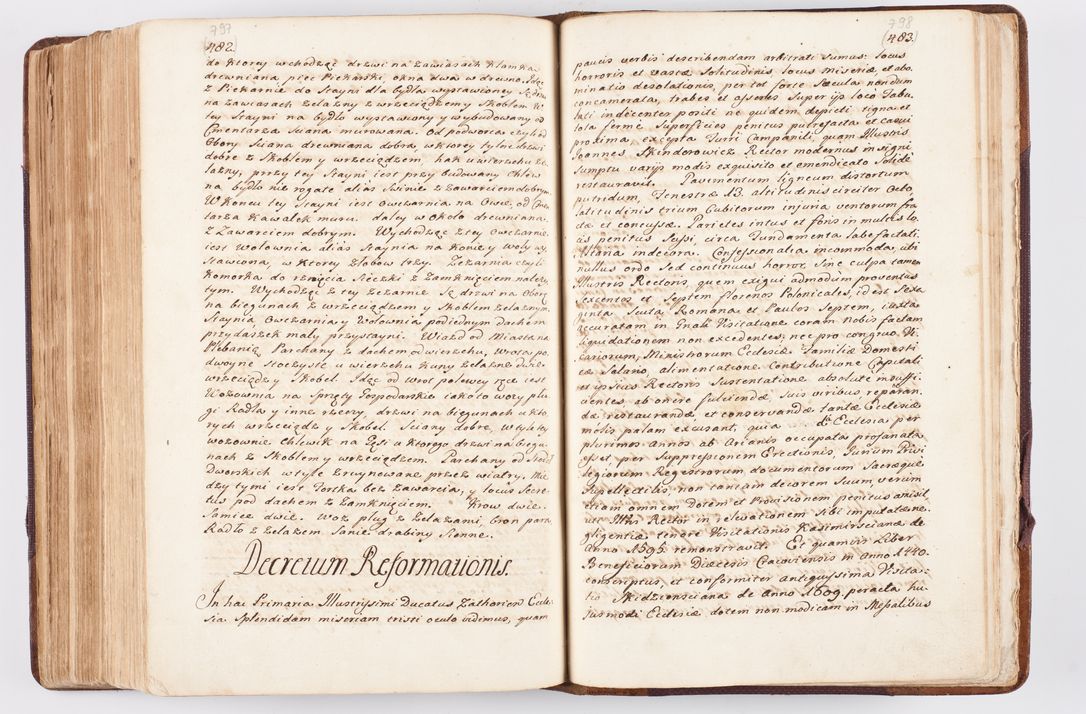 797
(482.)
do ktorey wchodząc drzwi na zawiasach klamka
drewniana piec Piekarski, okna dwa w drewno. Idąc
z Piekarnie do Stayni dla bydła wystawioney są drzwi
na zawiasach żelazny z wrzeciądzem y skoblem. W
tey Stayni na bydło wystawiony y wybudowany od
Cmentarza Sciana murowana. Od podworca czyli od
Obory Sciana drewniana dobra, w ktorey tylne drzwi
dobre z skoblem y wrzeciądzem, hak u wierzchu że
lazny, przy tey Stayni iest przybudowany Chlew
na bydło nie rogate alias Swinie z zawarciem dobrym.
W koncu tey Stayni iest Owczarnia na Owce, od Cmen
tarza kawałek muru. daley w około drewniana.
z Zawarciem dobrym. Wychodząc z tey Owczarnie
iest Wołownia alias Staynia na konie y woły wy
stawiona, w ktorey żłobow trzy. Zeżarnia czyli
komorka do rznięcia Sieczki z zamknięciem należy
tym. Wychodząc z tey Zeżarnie są drzwi na Oborę
na biegunach z wrzeciądzem y skoblem żelaznym.
Staynia Owczarnia y Wołownia pod iednym dachem
przydaszek mały przy stayni. Wiazd od Miasta na
Plebanią Parchany z dachem od wierzchu, Wrota po
dwoyne Stoczyste u wierzchu kuny żelazne dwie.
wrzeciądz y skobel. Idąc od wrot po lewey ręce iest
Wozownia na Sprzęty Gospodarskie iako to wozy płu
gi Radła y inne rzeczy, drzwi na biegunach u kto
rych wrzeciądz y Skobel. Sciany dobre, w tyle tey
wozownie Chlewik na Gęsi u ktorego drzwi na biegu
nach z skoblem y wrzeciądzem. Parchany od
Dworskich w tyle zruynowane przez wiatry. Mię
dzy tymi iest Fortka bez zawarcia, y locus Secre
tus pod dachem z Zamknięciem. Krow dwie.
Samice dwie. Woz pług z żelazami, bron para
Radło z żelazem Sanie drabiny Sienne.
Decretum Reformationis.
In hac Primaria Illustrissimi Ducatus Zathorien Eccle
sia Splendidam miseriam tristi oculo vidimus, quam
798
(483.)
paucis verbis describendam arbitrati sumus: locus
horroris et vastæ Solitudinis locus miseriæ, et abo
minatio desolationis, per tot forte Sæcula nondum
concamerata, trabes et asseres super ijs loco Tabu
lati indecenter positi ne quidem depicti tigna et
tota ferme Superficies penitus putrefacta et casui
proxima, excepta Turri Campanili, quam Illustris
Joannes Skindorowicz Rector modernus insigni
sumptu varijs modis exquisito et emendicato Solide
restauravit. Pavimentum ligneum distortum
putridum, Fenestræ 13. altitudinis circiter Octo
latitudinis trium Cubitorum injuria ventorum fra
ctæ et concussæ. Parietes intus et foris in multis lo
cis penitus Scissi, circa Fundamenta labefactati.
Altaria indecora. Confessionalia incommoda, ubi
nullus ordo Sed continuus horror. Sine culpa tamen
Illustris Rectoris, quem exigui admodum proventus
Sexcentos et Septem florenos Polonicales, id est Sexa
ginta Scuta Romana et Paulos Septem, iuxta
accuratam in Gnali Visitatione coram nobis factam
liquidationem non excedentes, nec pro congruo Vi
cariorum, Ministrorum Ecclesiæ Familiæ Domesti
cæ Salario, alimentatione Contributione Capitali
et ipsius Rectoris Sustentatione absolute insuffi
cientes ab onere fulciendæ, suis viribus reparan
dæ restaurandæ et conservandæ tantæ Ecclesiæ
molis palam excusant, quia Ecclesia per
plurimos Annos ab Arianis occupata profanata
est et per Suppressionem Erectionis, Jurium Privi
legiorum Regestrorum documentorum Sacræque
Supellectilis, non tantum decorem Suum, verum
etiam omnem Dotem et Provisionem penitus amisit,
uti Illtris Rector in relevationem sibi imputatæ ne
gligentiæ tenore Visitationis Kasimirscianæ de
Anno 1595 remonstravit. Et quamvis Liber
Beneficiorum Diæcesis Cracoviensis in Anno 1440.
conscriptus, et conformiter antiquissima Visita:
tio Skidziensciana de Anno 1609. peracta hu
iusmodi Ecclesiæ dotem non modicam in Missalibus